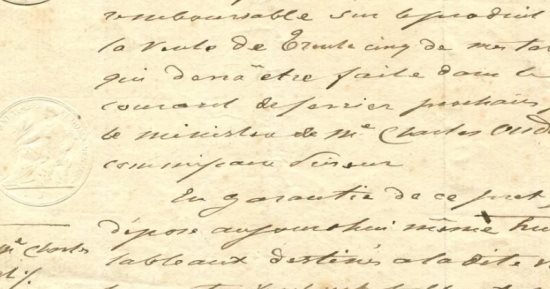 remboursable sur le produit
la vente de Trente cinq de mes ta
qui devra être faite dans le
courant de fevrier prochain
le ministère de Me Charles Oud
commissaire priseur
En garantie de ce pret
dépose aujourd'hui même hu
tableaux destinés à la dite v
Me Charles